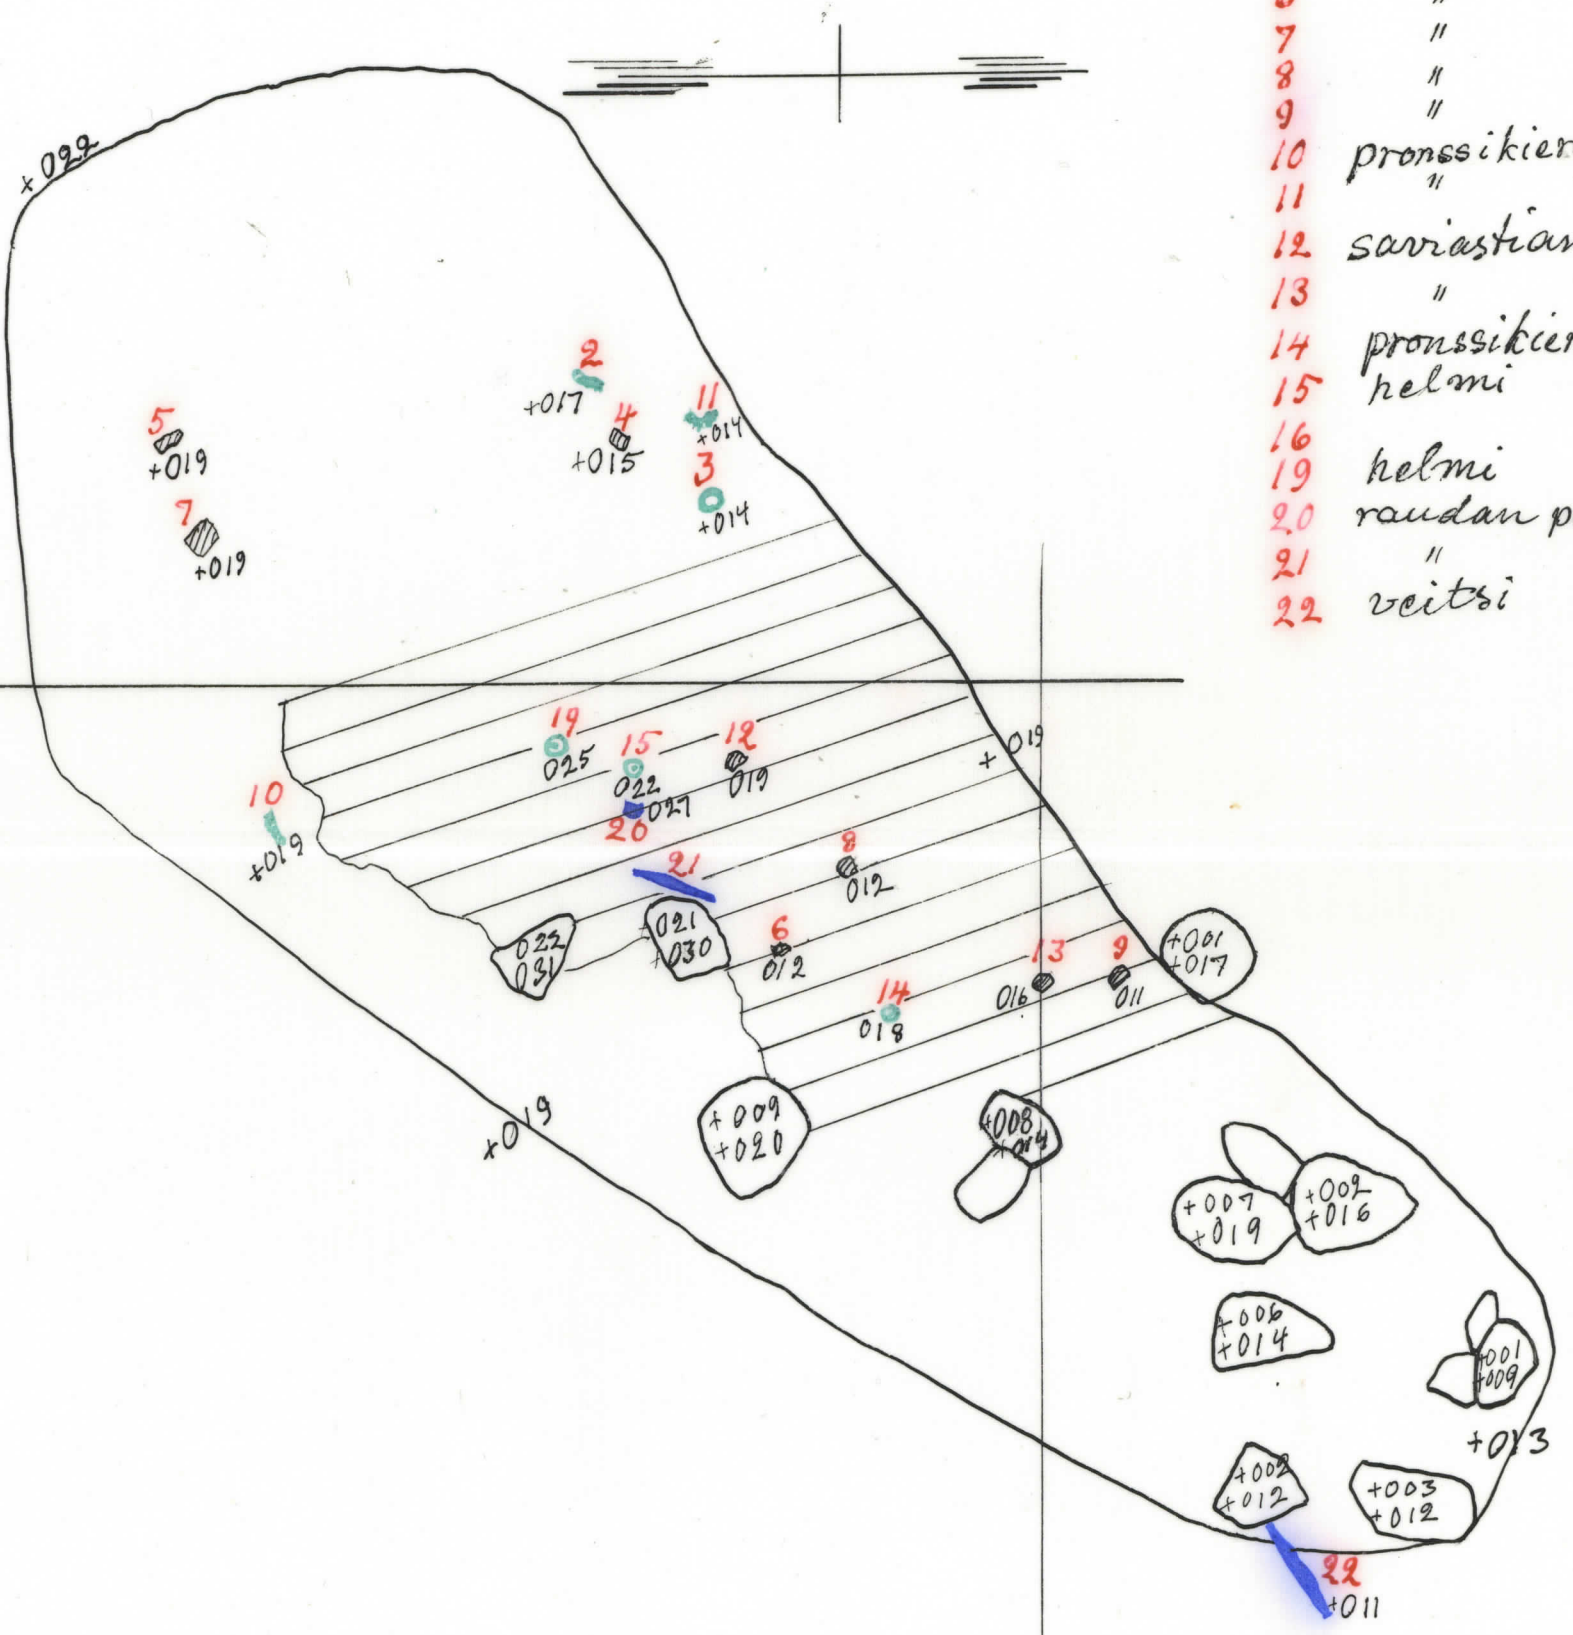 7 "
8 "
9 "
10 pronssikier
11 "
12 saviastian
13 "
14 pronssikier
15 helmi
16
19 helmi
20 raudan p
21 "
22 veitsi
+022
2
+017
11
+014
4
+015
3
+014
5
+019
7
+019
19
025
15
022
027
20
12
019
+019
10
+019
21
8
012
022
031
021
+030
6
012
13
016
9
011
+001
+017
14
018
+019
+009
+020
+008
+014
+007
+019
+002
+016
+006
+014
+001
+009
+013
+002
+012
+003
+012
22
+011